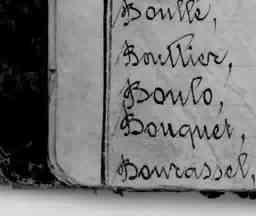 Boulle,
Bouttier,
Boulo,
Bouquet,
Bourassel,